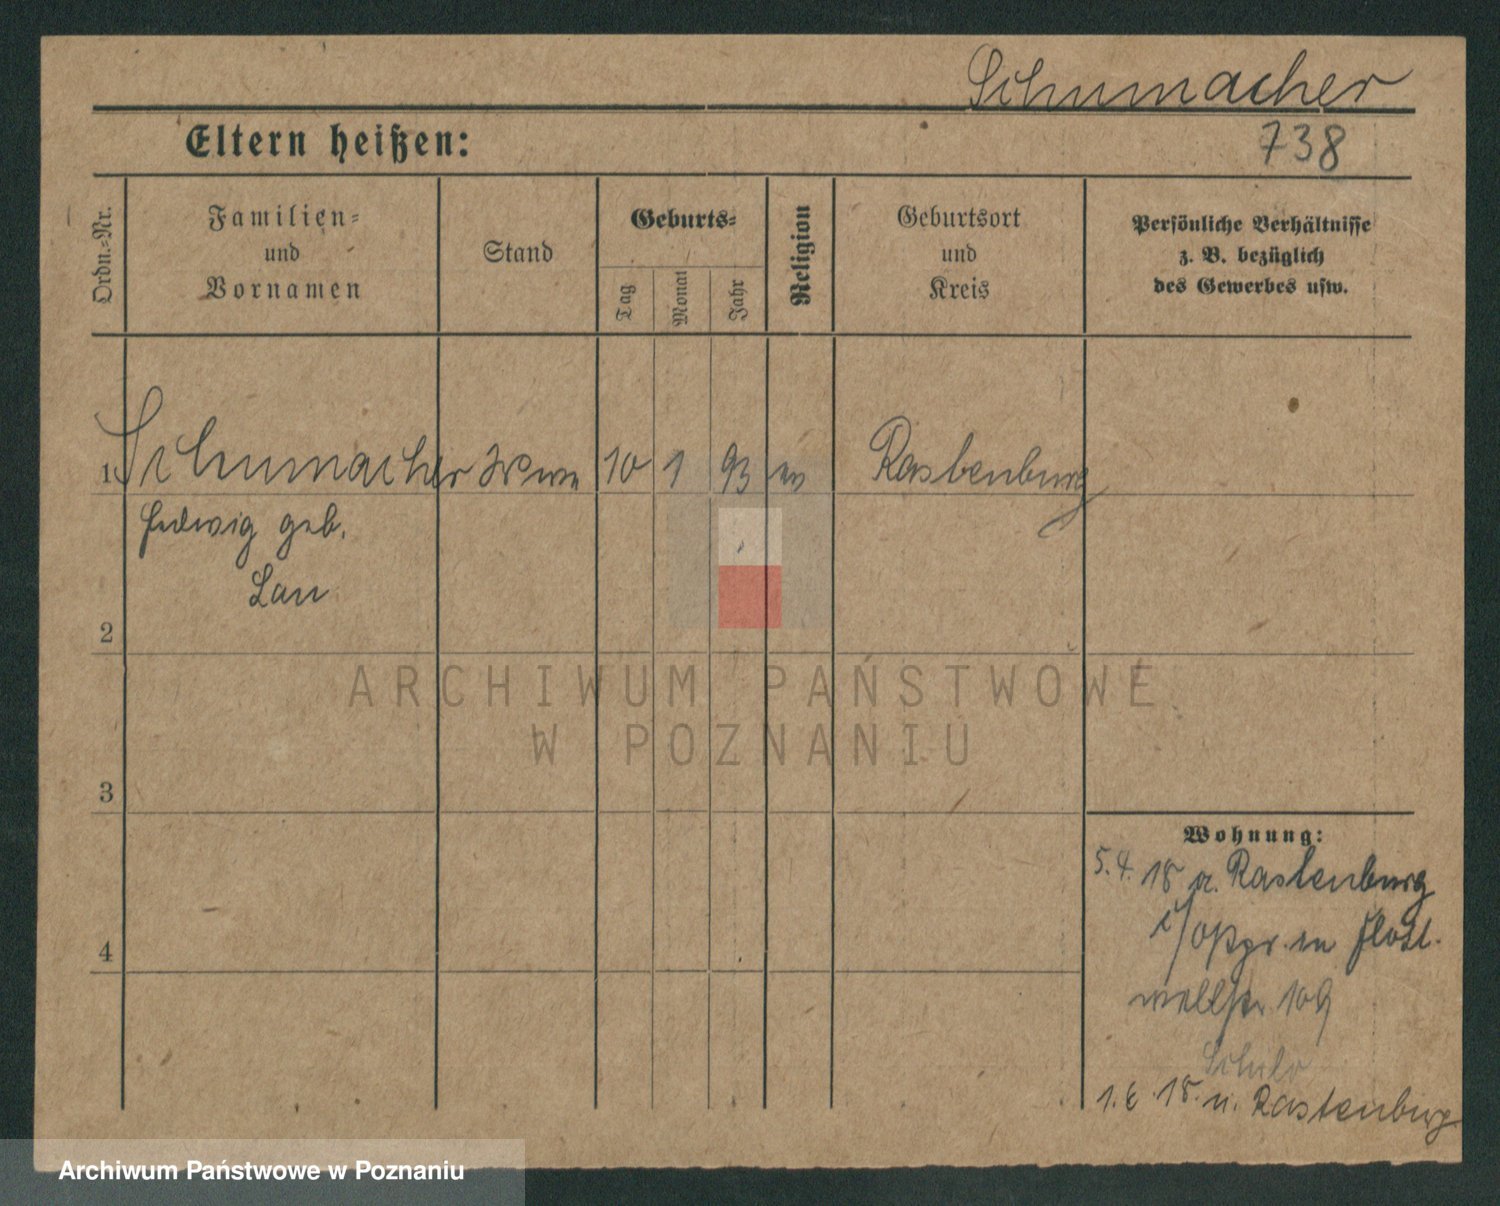 Schumacher
Eltern heißen:
738
Ordn.=Nr.
Familien=
und
Vornamen
Stand
Geburts=
Tag
Monat
Jahr
Religion
Geburtsort
und
Kreis
Persönliche Verhältnisse
z. B. bezüglich
des Gewerbes usw.
1 Schumacher Wwe 10 1 93 ev Rastenburg
Hedwig geb.
Lau
2
3
4
Wohnung:
5.4.18 a. Rastenburg
wellstr 109
Schulz
1.6.18. n. Rastenburg
ARCHIWUM PAŃSTWOWE
W POZNANIU
Archiwum Państwowe w Poznaniu